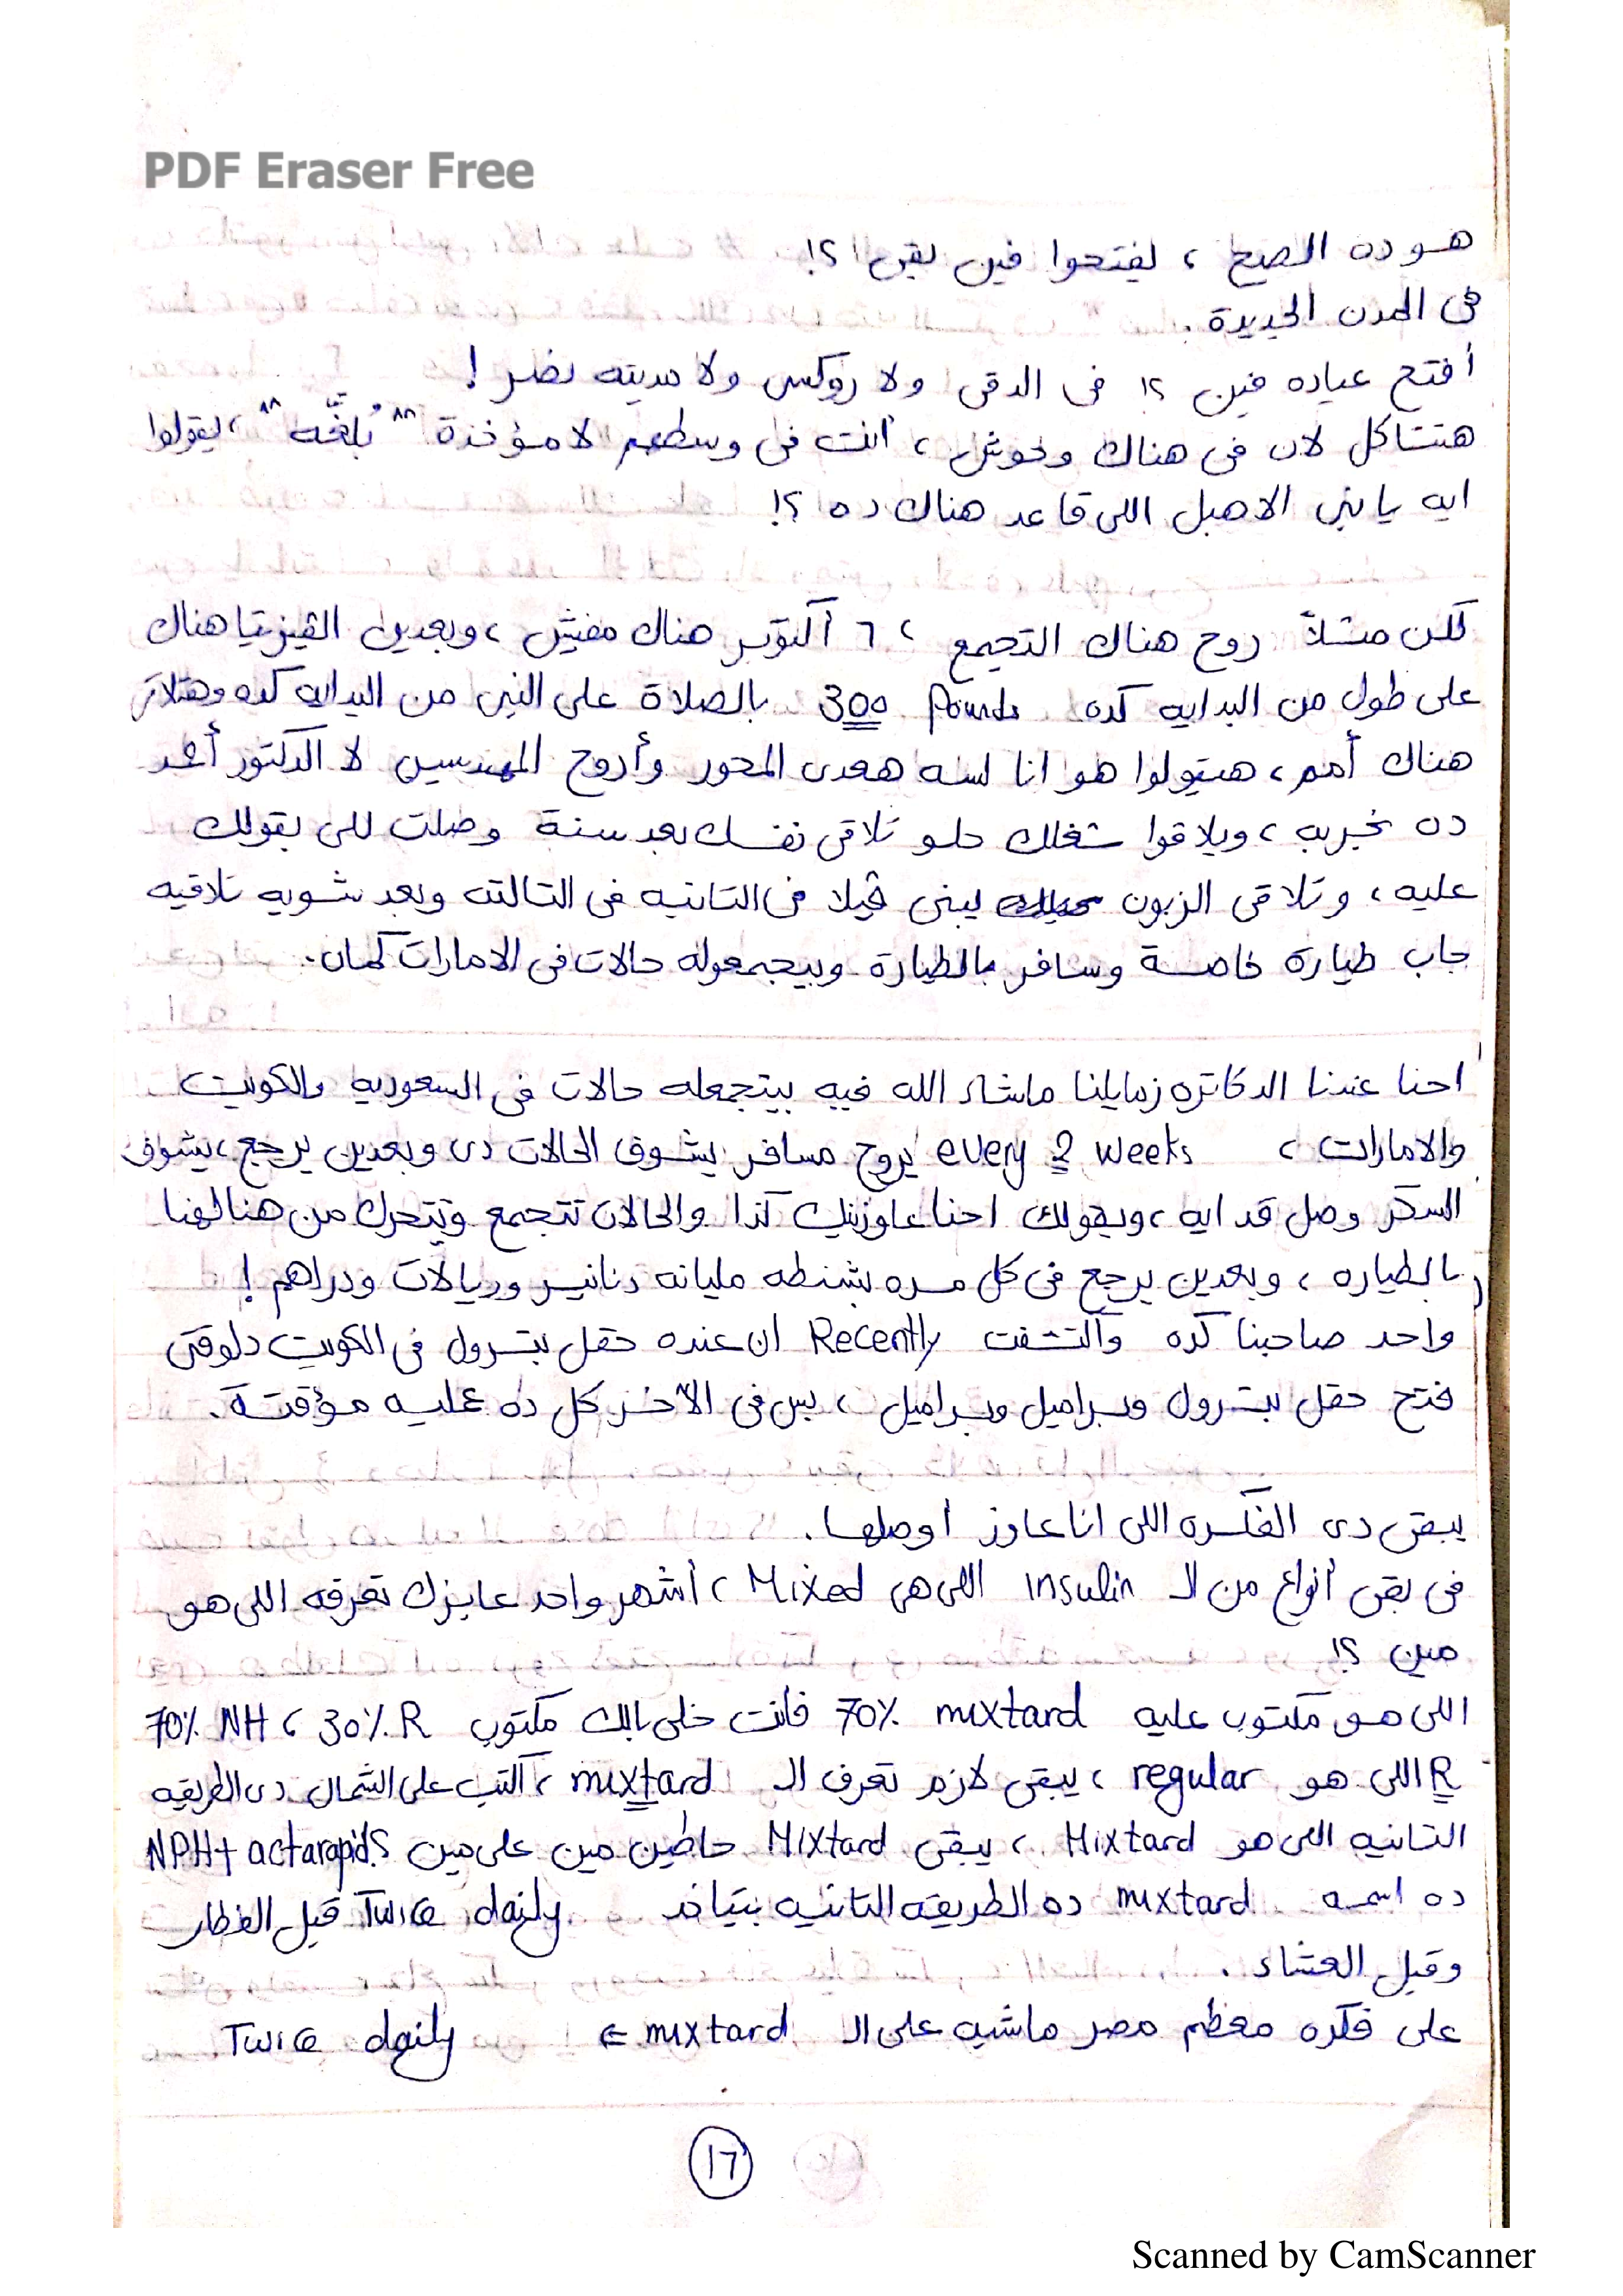 PDF Eraser Free
هو ده الصح ، يفتحوا فين بقى ؟!
فى المدن الجديدة .
أفتح عياده فين ؟! فى الدقى ولا روكسى ولا مدينه نصر !
هتتاكل لان فى هناك وحوش ، أنت فى وسطهم لا مؤخذة " بُلغَّه " ، يقولوا
ايه يابنى الاهبل اللى قاعد هناك ده ؟!
لكن مثلاً روح هناك التجمع ، ٦ أكتوبر هناك مفيش ، وبعدين الفيزيتا هناك
على طول من البدايه كده 300 Pounds بالصلاة على النبى من البدايه كده وهتلاقى
هناك أمم ، هيقولوا هو انا لسه هعدى المحور وأروح المهندسين لا الدكتور أهو
ده نجربه ، ويلاقوا شغلك حلو تلاقى نفسك بعد سنة وصلت للى بقولك
عليه ، وتلاقى الزبون يبنى ڤيلا فى التانيه فى التالته وبعد شويه تلاقيه
جاب طيارة خاصة وسافر بالطيارة وبيجمعوله حالات فى الامارات كمان .
احنا عندنا الدكاتره زمايلنا ماشاء الله فيه بيتجمعله حالات فى السعوديه والكويت
والامارات ، every 2 weeks يروح مسافر يشوف الحالات دى وبعدين يرجع ، يشوف
السكر وصل قد ايه ، ويقولك احنا عاوزينك كذا والحالات تتجمع وتتحرك من هنا لهنا
بالطياره ، وبعدين يرجع فى كل مره بشنطه مليانه دنانير وريالات ودراهم !
واحد صاحبنا كده واكتشفت Recently ان عنده حقل بترول فى الكويت دلوقتى
فتح حقل بترول وبراميل وبراميل ، بس فى الآخر كل ده عليه مؤقتة .
يبقى دى الفكره اللى انا عاوز اوصلها .
فى بقى أنواع من الـ Insulin اللى هى Mixed ، أشهر واحد عايزك تعرفه اللى هو
مين ؟!
اللى هو مكتوب عليه mixtard 70% فانت خلى بالك مكتوب 70% NH ، 30% R
R اللى هو regular ، يبقى لازم تعرف الـ mixtard ، اكتب على الشمال دى الطريقه
التانيه اللى هو Mixtard ، يبقى Mixtard حاطين مين على مين ؟ NPH + actarapid
ده اسمه mixtard ده الطريقه التانيه بتتاخد Twice daily قبل الفطار
وقبل العشاء .
على فكره معظم مصر ماشيه على الـ mixtard ⇐ Twice daily
١٦
Scanned by CamScanner